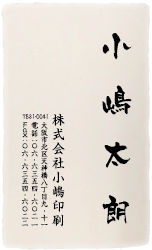 小嶋太朗
株式会社小嶋印刷
〒531-0041
大阪市北区天神橋八丁目九・十一
電話:〇六・六三五四・六〇二一
FAX:〇六・六三五四・六〇二二